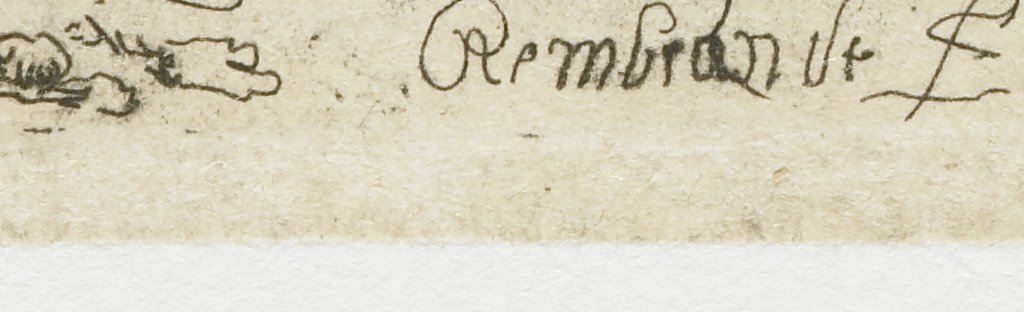 Rembrandt f